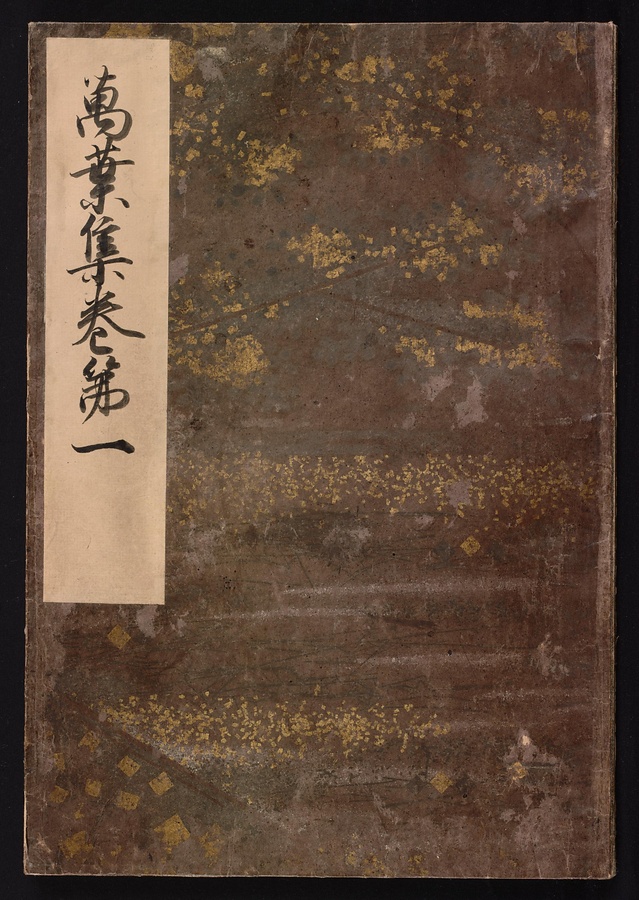 萬葉集巻第一